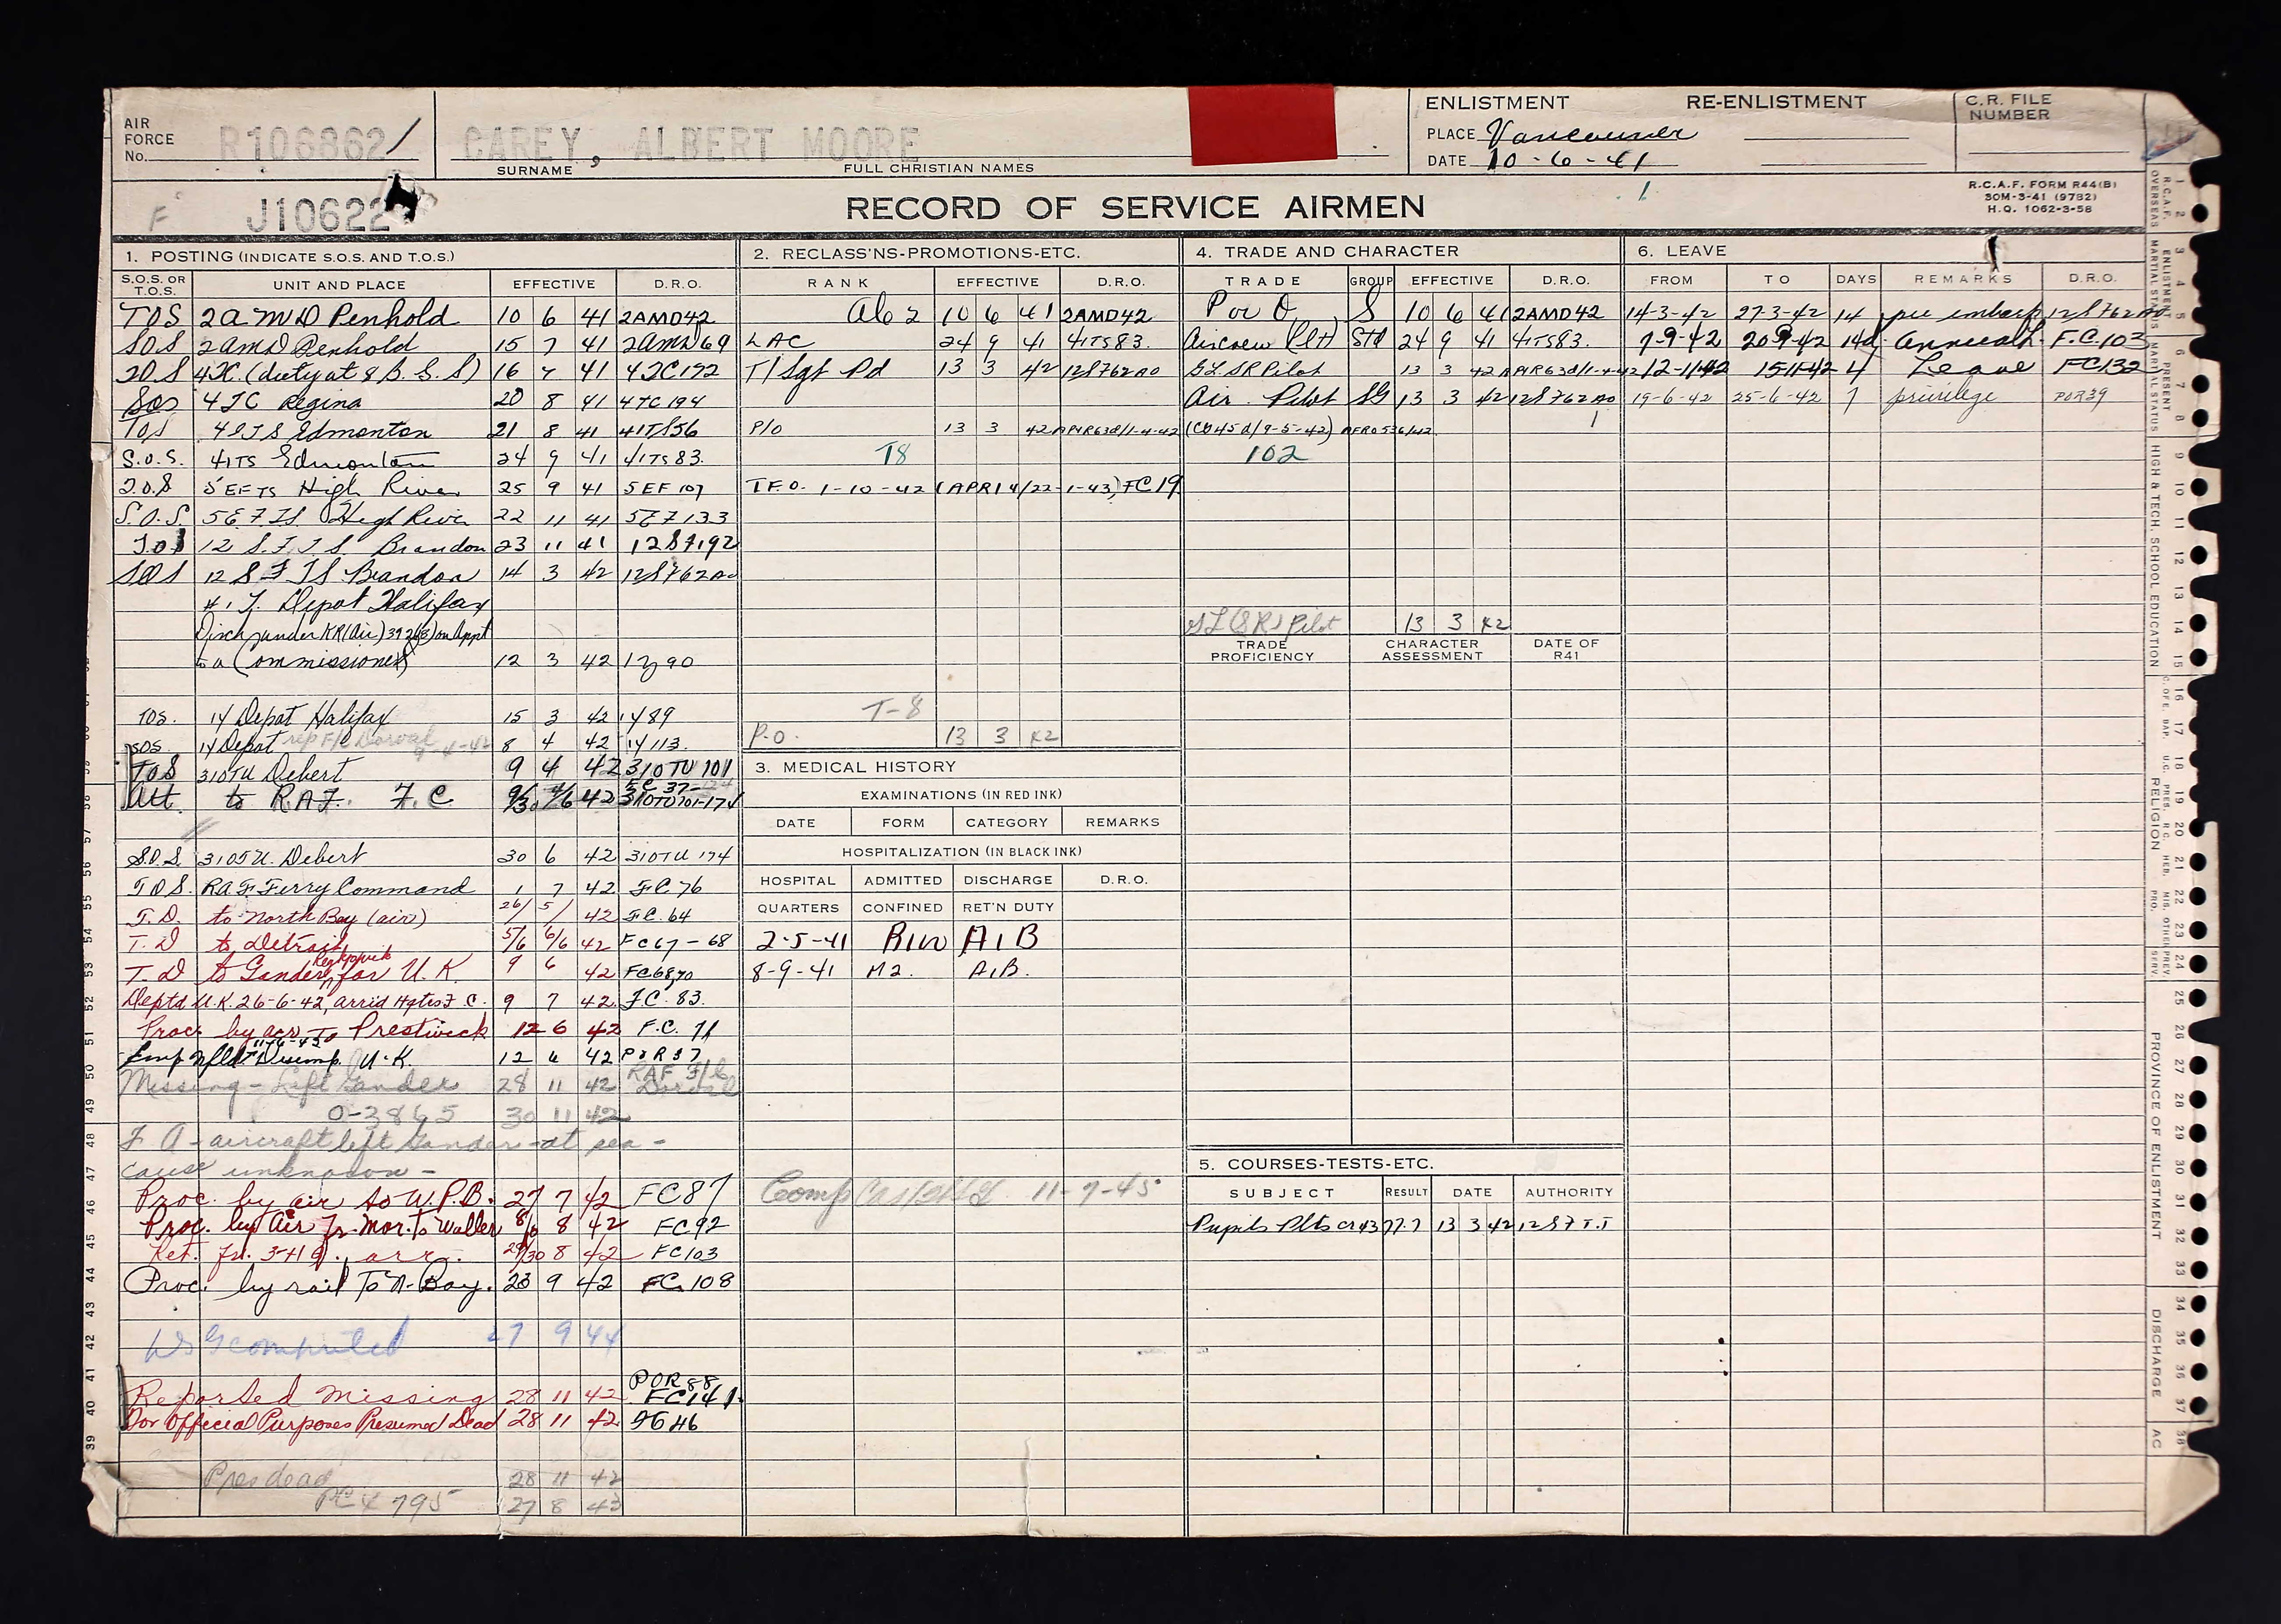 AIR FORCE No. R106862/
CAREY, ALBERT MOORE
SURNAME FULL CHRISTIAN NAMES
ENLISTMENT RE-ENLISTMENT
PLACE Vancouver
DATE 10-6-41
C.R. FILE NUMBER
F J10622
RECORD OF SERVICE AIRMEN
R.C.A.F. FORM R44(B)
50M-3-41 (9782)
H.Q. 1062-3-58
1. POSTING (INDICATE S.O.S. AND T.O.S.)
S.O.S. OR T.O.S. UNIT AND PLACE EFFECTIVE D.R.O.
TOS 2 AMD Penhold 10 6 41 2AMD42
SOS 2 AMD Penhold 15 7 41 2AMD69
TOS 4TC (duty at 8 B.G.S) 16 7 41 4TC172
SOS 4 TC Regina 20 8 41 4TC194
TOS 4 ITS Edmonton 21 8 41 4ITS56
S.O.S. 4ITS Edmonton 24 9 41 4ITS83.
T.O.S 5 EFTS High River 25 9 41 5EF107
S.O.S. 5 EFTS High River 22 11 41 5EF133
T.O.S 12 S.F.T.S. Brandon 23 11 41 12SF192
SOS 12 SFTS Brandon 14 3 42 12SF62AO
#1 Y Depot Halifax
Disch under KR(Air) 392(8) on Appt
to a Commission 12 3 42 1Y90
TOS. 1Y Depot Halifax 15 3 42 1Y89
SOS 1Y Depot rep F/C Dorval 9-4-42 8 4 42 1Y113.
TOS 31OTU Debert 9 4 42 31OTU 101
Att to R.A.F. F.C 9/30 4/6 42 FC 37 31OTU101-174
S.O.S. 31OTU. Debert 30 6 42 31OTU 174
T.O.S. RAF Ferry Command 1 7 42 FC 76
T.D. to North Bay (air) 26/ 5/ 42 F.C. 64
T.D to Detroit 5/6 6/6 42 FC67-68
T.D to Gander, Reykjavik for U.K. 9 6 42 FC68,70
Deptd U.K. 26-6-42, arrid Hqtrs F.C. 9 7 42 F.C. 83.
Proc. by air to Prestwick 12 6 42 F.C. 71
Emp Nfld 11-6-42 Disemp. U.K. 12 6 42 POR37
Missing - Left Gander 28 11 42 RAF F/C Dorval
0-3865 30 11 42
F A - aircraft left Gander - at sea -
cause unknown -
Proc. by air to W.P.B. 27 7 42 FC87
Proc. by Air fr. Mor. to Waller 8 42 FC92
Ret. fr. arr. 29/30 8 42 FC103
Proc. by rail To N. Bay. 23 9 42 FC 108
WSG computed 27 9 44
Reported Missing 28 11 42 POR88 FC141
For Official Purposes Presumed Dead 28 11 42
Pres dead 28 11 42
PC 4795 27 8 43
2. RECLASS'NS-PROMOTIONS-ETC.
RANK EFFECTIVE D.R.O.
AC2 10 6 41 2AMD42
LAC 24 9 41 4ITS83.
T/Sgt Pd 13 3 42 12SF62AO
P/O 13 3 42 APIR63d/1-4-42
T8
T.F.O. 1-10-42 (APRI 4/22-1-43) FC19
T-8
P.O. 13 3 42
3. MEDICAL HISTORY
EXAMINATIONS (IN RED INK)
DATE FORM CATEGORY REMARKS
HOSPITALIZATION (IN BLACK INK)
HOSPITAL ADMITTED DISCHARGE D.R.O.
QUARTERS CONFINED RET'N DUTY
2-5-41 A1B
8-9-41 M2. A1B.
Comp Casualty 11-7-45
4. TRADE AND CHARACTER
TRADE GROUP EFFECTIVE D.R.O.
P or O S 10 6 41 2AMD42
Aircrew (Plt) STD 24 9 41 4ITS83.
GL SR Pilot 13 3 42 APIR63d/1-4-42
Air Pilot SG 13 3 42 12SF62AO
(CO45d/9-5-42) AFRO536/42
102
GL (SR) Pilot 13 3 42
TRADE PROFICIENCY CHARACTER ASSESSMENT DATE OF R41
5. COURSES-TESTS-ETC.
SUBJECT RESULT DATE AUTHORITY
Pupils Plts cr43 77.7 13 3 42 12SFTS
6. LEAVE
FROM TO DAYS REMARKS D.R.O.
14-3-42 27-3-42 14 pre embarp 12SF62AO
7-9-42 20-9-42 14d. Annual. F.C.103
12-11-42 15-11-42 4 Leave FC132
19-6-42 25-6-42 7 privilege POR39
R.C.A.F. OVERSEAS
ENLISTMENT MARTIAL STATUS
PRESENT MARTIAL STATUS
HIGH & TECH. SCHOOL EDUCATION
C. OF E. BAP. U.C. PRES. R.C. HEB. MIS. OTHER
RELIGION
PREV. SERV.
PROVINCE OF ENLISTMENT
DISCHARGE
AC